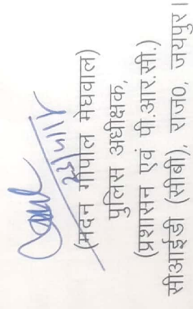 (मदन गोपाल मेघवाल)
पुलिस अधीक्षक,
(प्रशासन एवं पी.आर.सी.)
सीआईडी (सीबी), राज0, जयपुर।